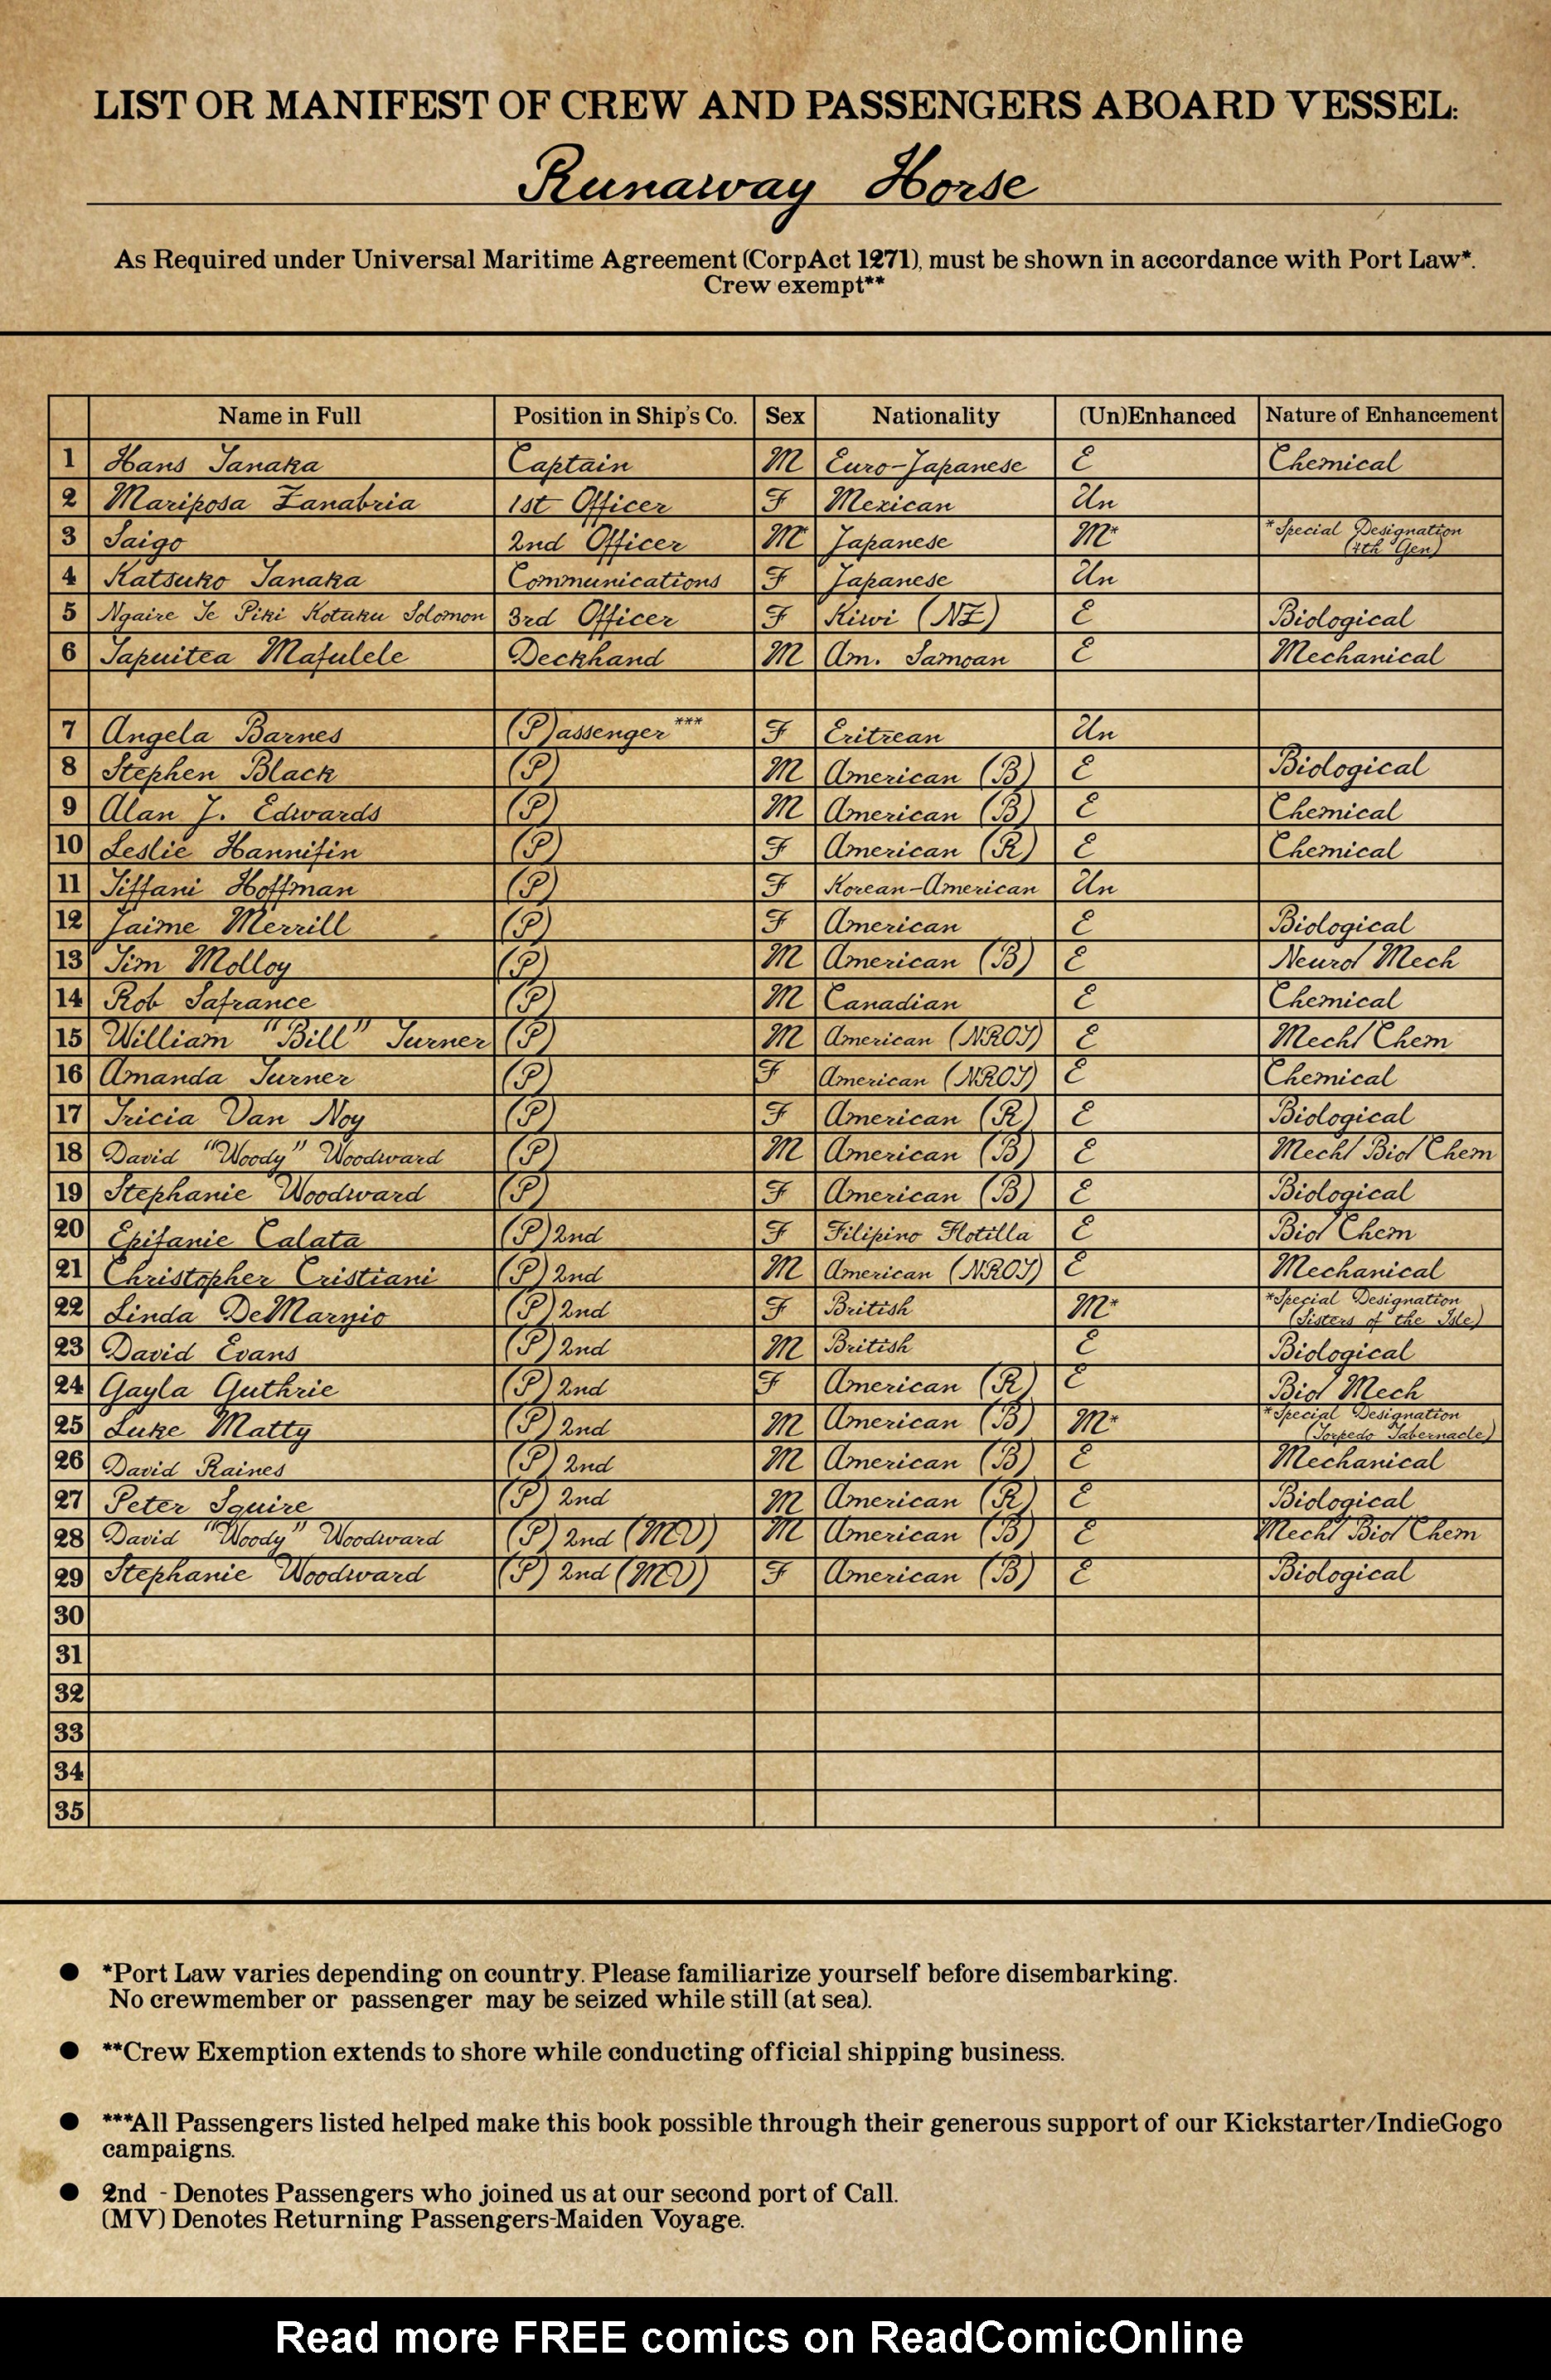 LIST OR MANIFEST OF CREW AND PASSENGERS ABOARD VESSEL:
Runaway Horse
As Required under Universal Maritime Agreement (CorpAct 1271), must be shown in accordance with Port Law*.
Crew exempt**
Name in Full Position in Ship's Co. Sex Nationality (Un)Enhanced Nature of Enhancement
1 Hans Tanaka Captain M Euro-Japanese E Chemical
2 Mariposa Zanabria 1st Officer F Mexican Un
3 Saigo 2nd Officer M* Japanese M* *Special Designation
(4th Gen)
4 Katsuko Tanaka Communications F Japanese Un
5 Ngaire Te Piki Kotuku Solomon 3rd Officer F Kiwi (NZ) E Biological
6 Tapuitea Mafulele Deckhand M Am. Samoan E Mechanical
7 Angela Barnes (P)assenger*** F Eritrean Un
8 Stephen Black (P) M American (B) E Biological
9 Alan J. Edwards (P) M American (B) E Chemical
10 Leslie Hannifin (P) F American (R) E Chemical
11 Tiffani Hoffman (P) F Korean-American Un
12 Jaime Merrill (P) F American E Biological
13 Tim Molloy (P) M American (B) E Neuro/Mech
14 Rob Safrance (P) M Canadian E Chemical
15 William "Bill" Turner (P) M American (NROT) E Mech/Chem
16 Amanda Turner (P) F American (NROT) E Chemical
17 Tricia Van Noy (P) F American (R) E Biological
18 David "Woody" Woodward (P) M American (B) E Mech/Bio/Chem
19 Stephanie Woodward (P) F American (B) E Biological
20 Epifanie Calata (P)2nd F Filipino Flotilla E Bio/Chem
21 Christopher Cristiani (P)2nd M American (NROT) E Mechanical
22 Linda DeMarzio (P)2nd F British M* *Special Designation
(Sisters of the Isle)
23 David Evans (P)2nd M British E Biological
24 Gayla Guthrie (P)2nd F American (R) E Bio/Mech
25 Luke Matty (P)2nd M American (B) M* *Special Designation
(Torpedo Tabernacle)
26 David Raines (P) 2nd M American (B) E Mechanical
27 Peter Squire (P) 2nd M American (R) E Biological
28 David "Woody" Woodward (P) 2nd (MV) M American (B) E Mech/Bio/Chem
29 Stephanie Woodward (P) 2nd (MV) F American (B) E Biological
30
31
32
33
34
35
● *Port Law varies depending on country. Please familiarize yourself before disembarking.
No crewmember or passenger may be seized while still (at sea).
● **Crew Exemption extends to shore while conducting official shipping business.
● ***All Passengers listed helped make this book possible through their generous support of our Kickstarter/IndieGogo
campaigns.
● 2nd - Denotes Passengers who joined us at our second port of Call.
(MV) Denotes Returning Passengers-Maiden Voyage.
Read more FREE comics on ReadComicOnline